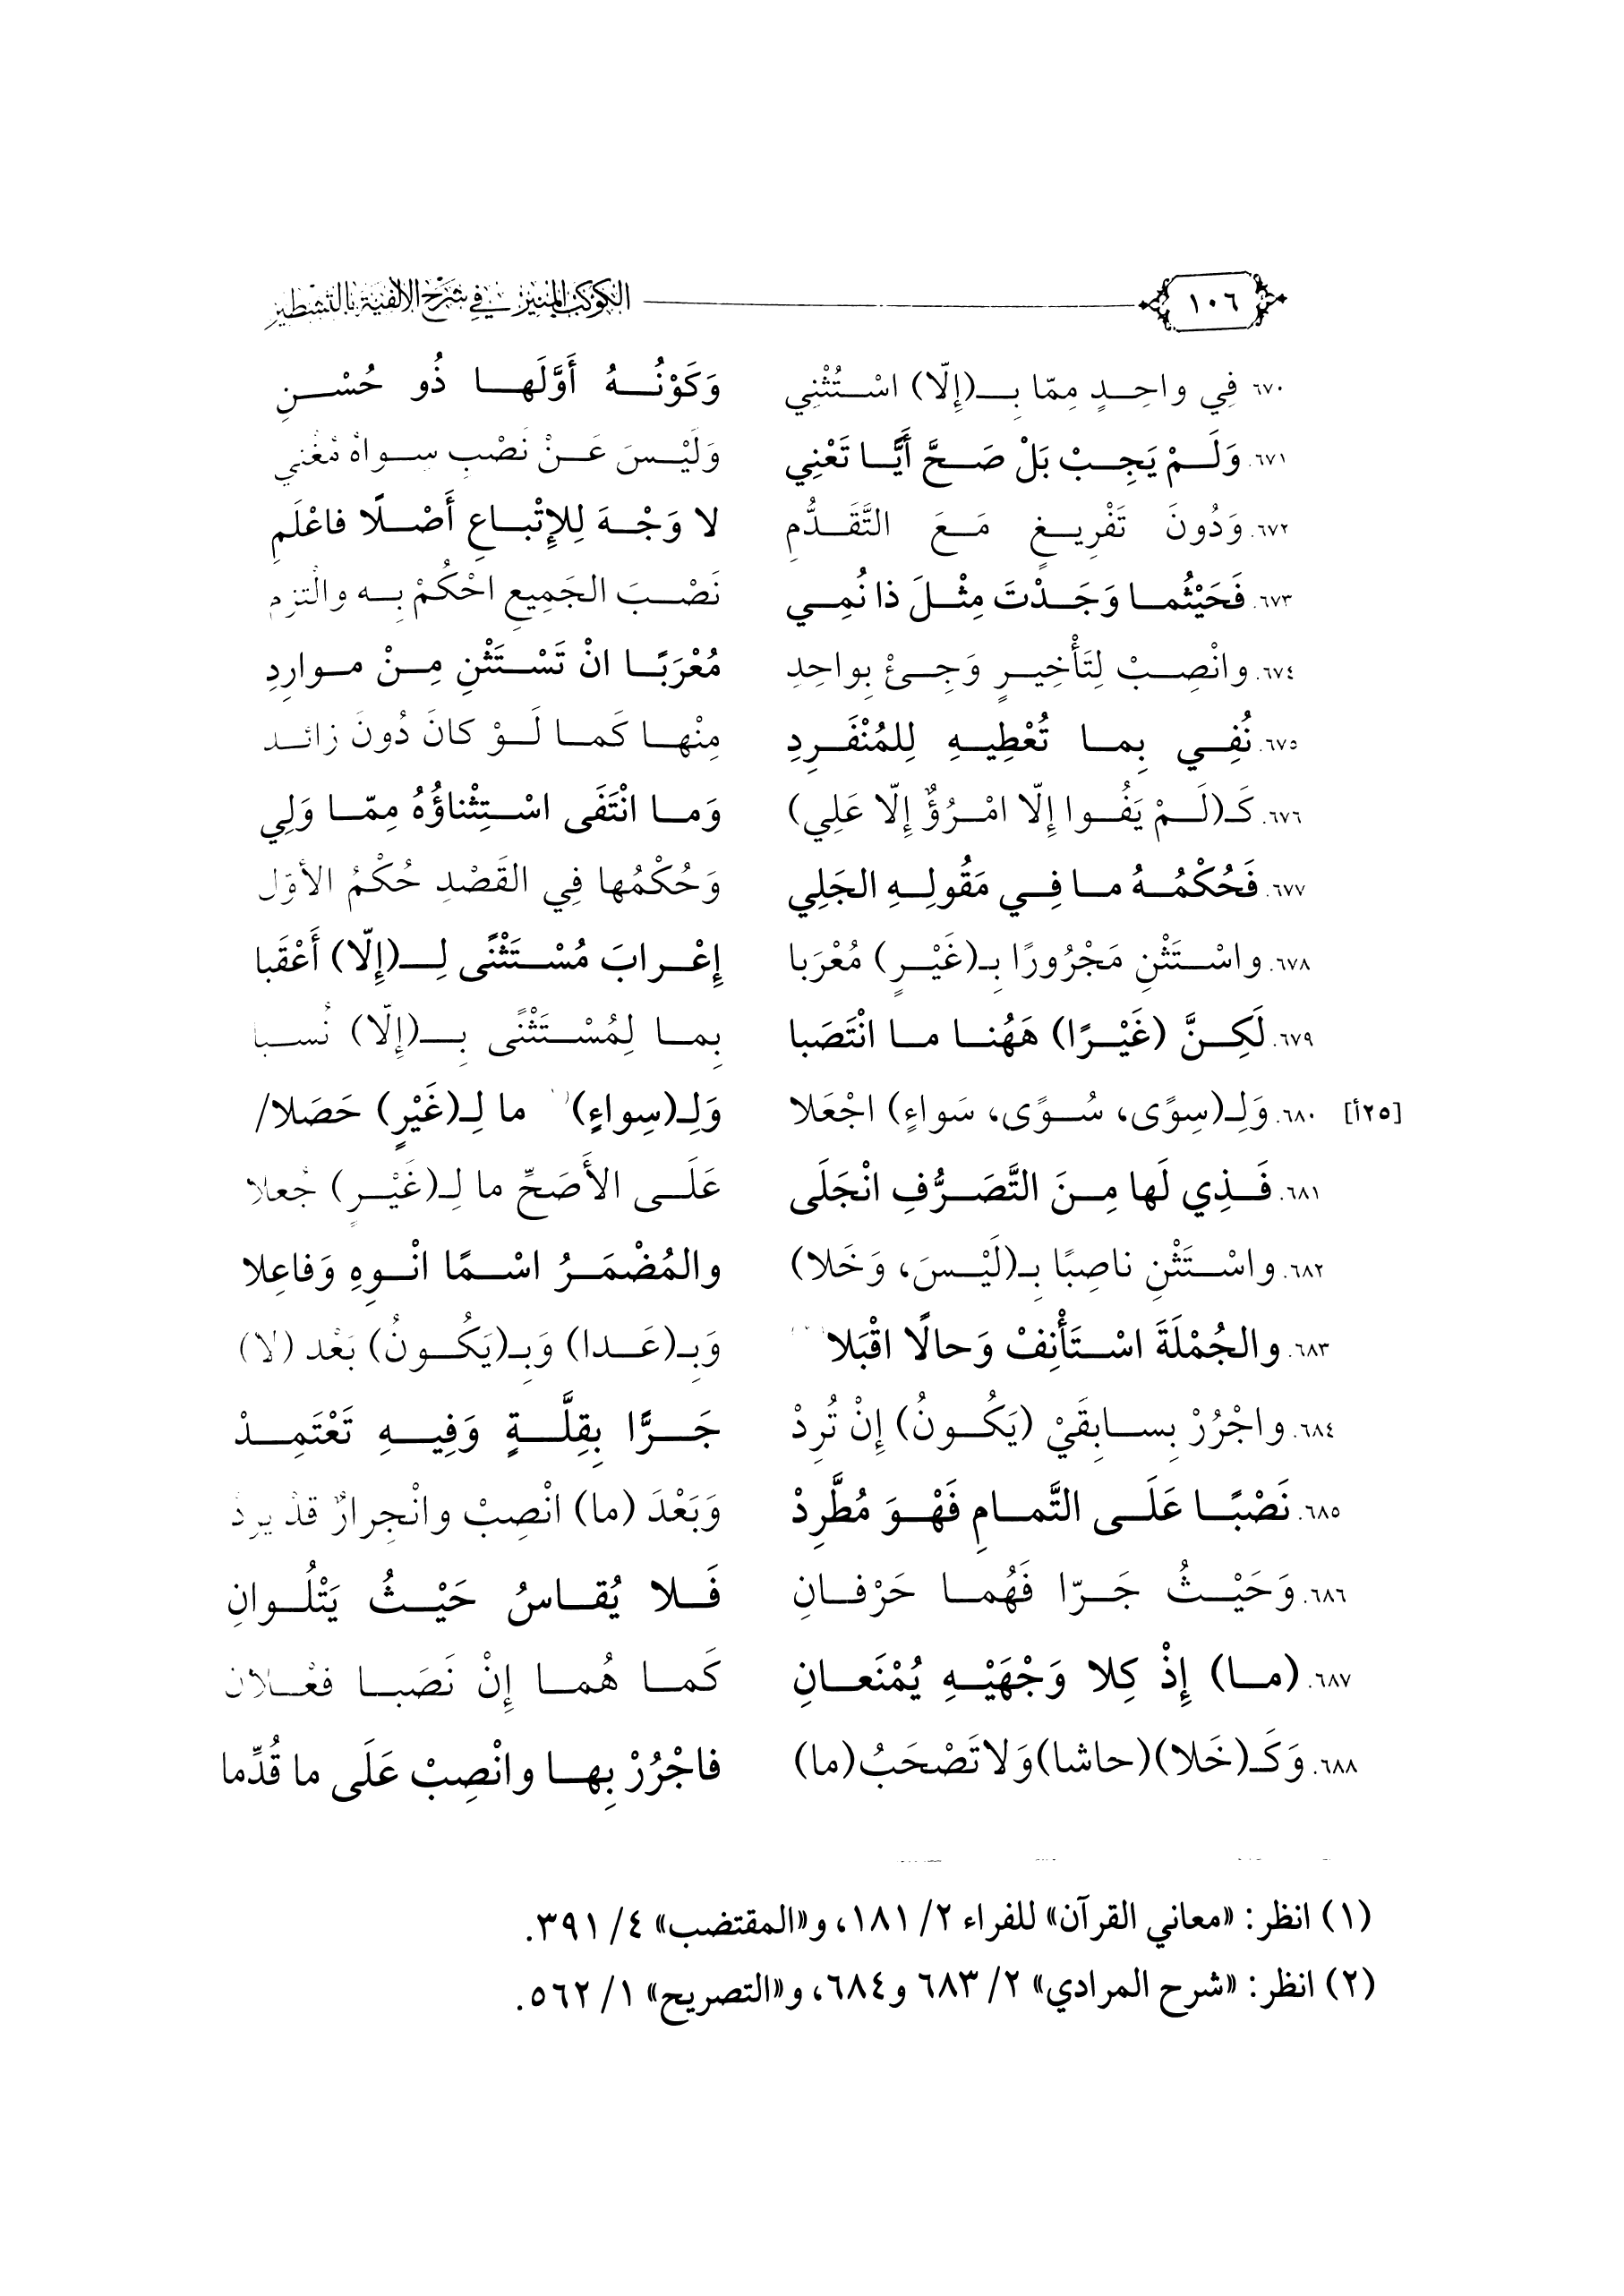 ١٠٦ الكوكب المنير في شرح الألفية بالتشطير
٦٧٠. فِي واحِـدٍ مِمّا بِــ(إِلّا) اسْـتُثْنِي وَكَوْنُـهُ أَوَّلَهـا ذُو حُسْـنِ
٦٧١. وَلَـمْ يَجِـبْ بَلْ صَـحَّ أَيًّـا تَعْنِي وَلَيْـسَ عَـنْ نَصْبِ سِـواهُ مُغْنِي
٦٧٢. وَدُونَ تَفْرِيـغٍ مَـعَ التَّقَـدُّمِ لا وَجْـهَ لِلإِتْبـاعِ أَصْـلًا فاعْلَمِ
٦٧٣. فَحَيْثُمـا وَجَـدْتَ مِثْـلَ ذا نُمِـي نَصْـبَ الجَمِيعِ احْكُمْ بِـه والْتزم
٦٧٤. وانْصِـبْ لِتَأْخِيـرٍ وَجِـئْ بِواحِدِ مُعْرَبًـا انْ تَسْـتَثْنِ مِـنْ مـوارِدِ
٦٧٥. نُفِـي بِمـا تُعْطِيـهِ لِلمُنْفَـرِدِ مِنْهـا كَمـا لَـوْ كانَ دُونَ زائـد
٦٧٦. كَـ(لَـمْ يَفُـوا إِلّا امْـرُؤٌ إِلّا عَلِي) وَمـا انْتَفَى اسْـتِثْناؤُهُ مِمّـا وَلِي
٦٧٧. فَحُكْمُـهُ مـا فِـي مَقُولِـهِ الجَلِي وَحُكْمُها فِي القَصْدِ حُكْمُ الأوّلِ
٦٧٨. واسْـتَثْنِ مَجْرُورًا بِـ(غَيْـرٍ) مُعْرَبا إِعْـرابَ مُسْـتَثْنًى لِــ(إِلّا) أَعْقَبا
٦٧٩. لَكِـنَّ (غَيْـرًا) هَهُنـا مـا انْتَصَبا بِمـا لِمُسْـتَثْنًى بِــ(إِلّا) نُسبا
[٢٥أ] ٦٨٠. وَلِـ(سِوًى، سُـوًى، سَواءٍ) اجْعَلا وَلِـ(سِواءٍ)(١) ما لِـ(غَيْرٍ) حَصَلا/
٦٨١. فَـذِي لَها مِـنَ التَّصَـرُّفِ انْجَلَى عَلَـى الأَصَحِّ ما لِـ(غَيْـرٍ) جُعلا
٦٨٢. واسْـتَثْنِ ناصِبًا بِـ(لَيْـسَ، وَخَلا) والمُضْمَـرُ اسْـمًا انْـوِهِ وَفاعِلا
٦٨٣. والجُمْلَةَ اسْـتَأْنِفْ وَحالًا اقْبَلا(٢) وَبِـ(عَـدا) وَبِـ(يَكُـونُ) بَعْد (لا)
٦٨٤. واجْرُرْ بِسـابِقَيْ (يَكُـونُ) إِنْ تُرِدْ جَـرًّا بِقِلَّـةٍ وَفِيـهِ تَعْتَمِـدْ
٦٨٥. نَصْبًـا عَلَـى التَّمـامِ فَهْـوَ مُطَّرِدْ وَبَعْدَ (ما) انْصِبْ وانْجِرارٌ قَدْ يرِدْ
٦٨٦. وَحَيْـثُ جَـرّا فَهُمـا حَرْفـانِ فَـلا يُقـاسُ حَيْـثُ يَتْلُـوانِ
٦٨٧. (مـا) إِذْ كِلا وَجْهَيْـهِ يُمْنَعـانِ كَمـا هُمـا إِنْ نَصَبـا فعْـلان
٦٨٨. وَكَـ(خَلا)(حاشا)وَلا تَصْحَبُ(ما) فاجْرُرْ بِهـا وانْصِبْ عَلَى ما قُدِّما
(١) انظر: «معاني القرآن» للفراء ٢/ ١٨١، و«المقتضب» ٤/ ٣٩١.
(٢) انظر: «شرح المرادي» ٢/ ٦٨٣ و٦٨٤، و«التصريح» ١/ ٥٦٢.